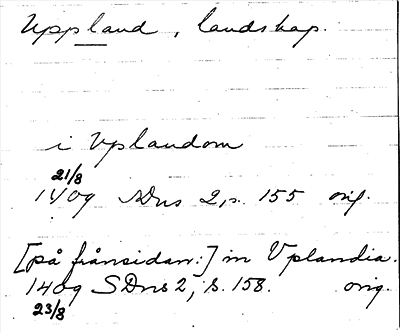 Uppland, landskap.
i Vplandom
21/8
1409 SDns 2, s. 155 orig.
[på frånsidan:] in Vplandia.
1409 SDns 2, s. 158. orig.
23/8